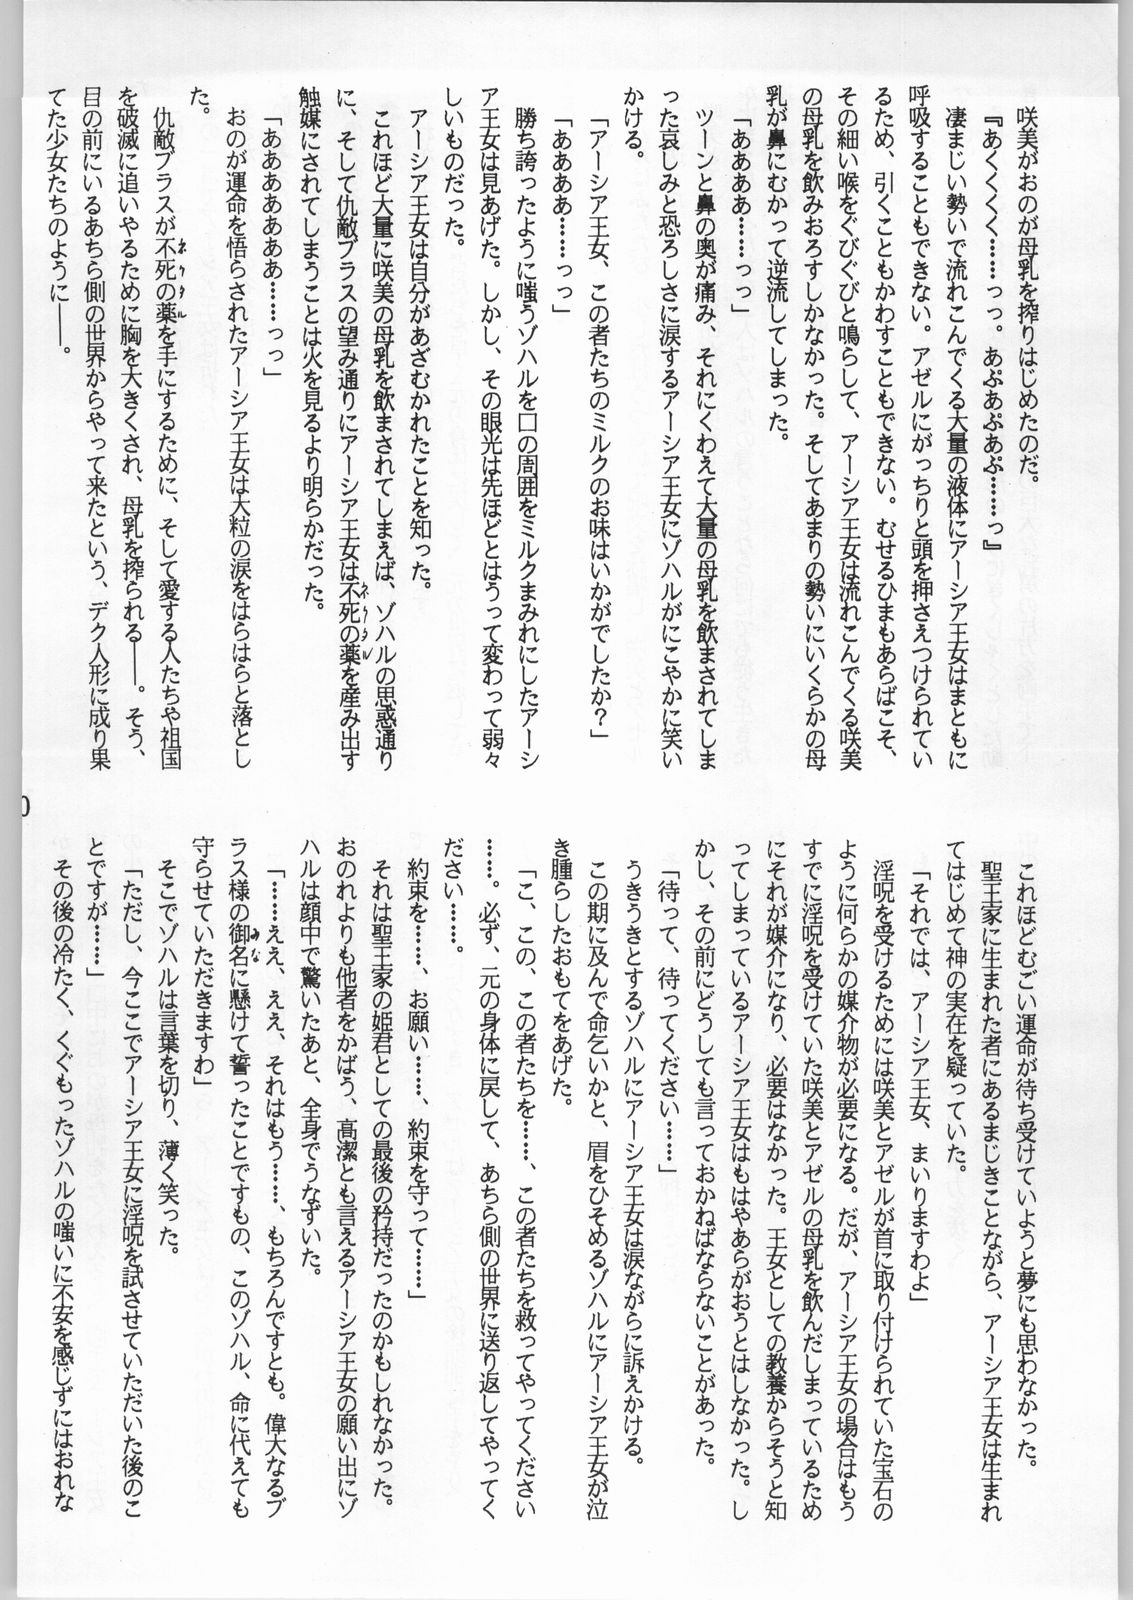 咲美がおのが母乳を搾りはじめたのだ。
『あくくくく……っっ。あぷあぷあぷ……っ』
凄まじい勢いで流れこんでくる大量の液体にアーシア王女はまともに
呼吸することもできない。アゼルにがっちりと頭を押さえつけられてい
るため、引くこともかわすこともできない。むせるひまもあらばこそ、
その細い喉をぐびぐびと鳴らして、アーシア王女は流れこんでくる咲美
の母乳を飲みおろすしかなかった。そしてあまりの勢いにいくらかの母
乳が鼻にむかって逆流してしまった。
「ああああ……っっ」
ツーンと鼻の奥が痛み、それにくわえて大量の母乳を飲まされてしま
った哀しみと恐ろしさに涙するアーシア王女にゾハルがにこやかに笑い
かける。
「アーシア王女、この者たちのミルクのお味はいかがでしたか？」
「ああああ……っっ」
勝ち誇ったように嗤うゾハルを口の周囲をミルクまみれにしたアーシ
ア王女は見あげた。しかし、その眼光は先ほどとはうって変わって弱々
しいものだった。
アーシア王女は自分があざむかれたことを知った。
これほど大量に咲美の母乳を飲まされてしまえば、ゾハルの思惑通り
に、そして仇敵ブラスの望み通りにアーシア王女は不死の薬ネクタルを産み出す
触媒にされてしまうことは火を見るより明らかだった。
「あああああああ……っっ」
おのが運命を悟らされたアーシア王女は大粒の涙をはらはらと落とし
た。
仇敵ブラスが不死の薬ネクタルを手にするために、そして愛する人たちや祖国
を破滅に追いやるために胸を大きくされ、母乳を搾られる――。そう、
目の前にいるあちら側の世界からやって来たという、デク人形に成り果
てた少女たちのように――。
これほどむごい運命が待ち受けていようと夢にも思わなかった。
聖王家に生まれた者にあるまじきことながら、アーシア王女は生まれ
てはじめて神の実在を疑っていた。
「それでは、アーシア王女、まいりますわよ」
淫呪を受けるためには咲美とアゼルが首に取り付けられていた宝石の
ように何らかの媒介物が必要になる。だが、アーシア王女の場合はもう
すでに淫呪を受けていた咲美とアゼルの母乳を飲んだしまっているため
にそれが媒介になり、必要はなかった。王女としての教養からそうと知
ってしまっているアーシア王女はもはやあらがおうとはしなかった。し
かし、その前にどうしても言っておかねばならないことがあった。
「待って、待ってください……」
うきうきとするゾハルにアーシア王女は涙ながらに訴えかける。
この期に及んで命乞いかと、眉をひそめるゾハルにアーシア王女が泣
き腫らしたおもてをあげた。
「こ、この、この者たちを……、この者たちを救ってやってください
……。必ず、元の身体に戻して、あちら側の世界に送り返してやってく
ださい……。
約束を……、お願い……、約束を守って……」
それは聖王家の姫君としての最後の矜持だったのかもしれなかった。
おのれよりも他者をかばう、高潔とも言えるアーシア王女の願い出にゾ
ハルは顔中で驚いたあと、全身でうなずいた。
「……ええ、ええ、それはもう……、もちろんですとも。偉大なるブ
ラス様の御名みなに懸けて誓ったことですもの、このゾハル、命に代えても
守らせていただきますわ」
そこでゾハルは言葉を切り、薄く笑った。
「ただし、今ここでアーシア王女に淫呪を試させていただいた後のこ
とですが……」
その後の冷たく、くぐもったゾハルの嗤いに不安を感じずにはおれな